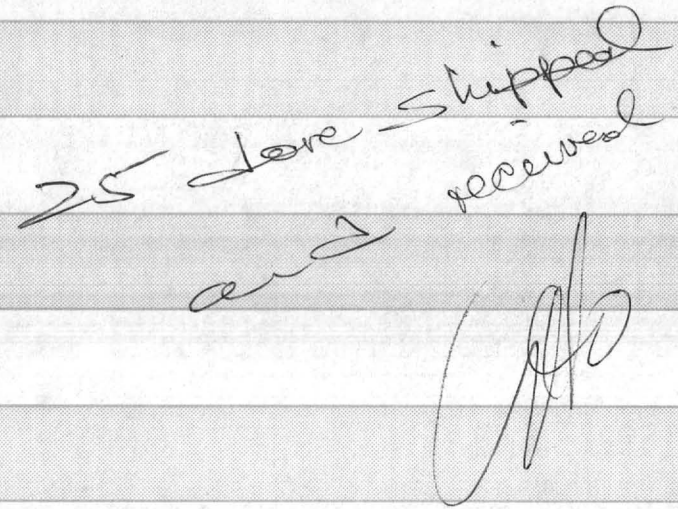 25 dore shipped
and received